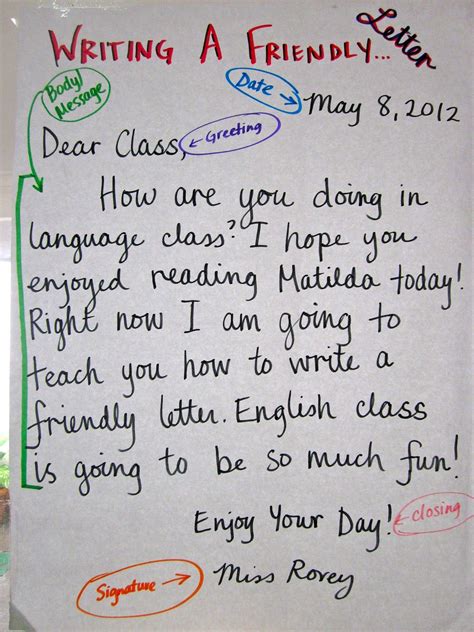 WRITING A FRIENDLY... Letter
Body/
Message
Date → May 8, 2012
Dear Class, ← Greeting
How are you doing in
language class? I hope you
enjoyed reading Matilda today!
Right now I am going to
teach you how to write a
friendly letter. English class
is going to be so much fun!
Enjoy Your Day! ← closing
Signature → Miss Rovey